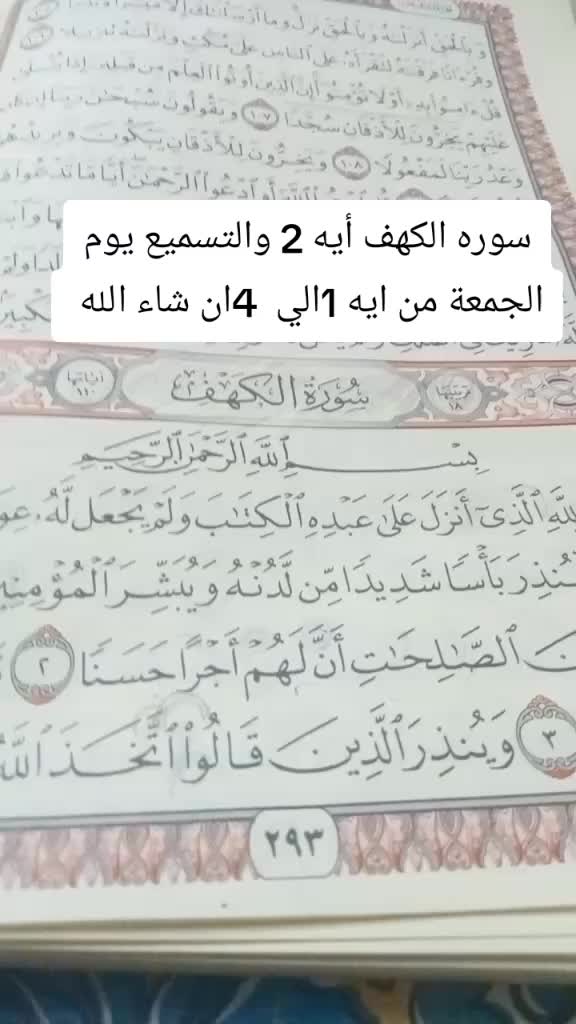 وبالحق أنزلنه وبالحق نزل وما أرسلنك إلا مبشرا
وقرءانا فرقنه لتقرأه على الناس على مكث ونزلنه تنزيلا
قل ءامنوا به أو لا تؤمنوا إن الذين أوتوا العلم من قبله إذا يتلى
عليهم يخرون للأذقان سجدا ١٠٧ ويقولون سبحن ربنا إن
وعد ربنا لمفعولا ١٠٨ ويخرون للأذقان يبكون ويزيدهم
أو ادعوا الرحمن أيا ما تدعوا
سوره الكهف أيه 2 والتسميع يوم
الجمعة من ايه 1الي 4ان شاء الله
ترتيبها ١٨ سُورَةُ الكَهْفِ آياتها ١١٠
بِسْمِ ٱللَّهِ ٱلرَّحْمَٰنِ ٱلرَّحِيمِ
لِلَّهِ ٱلَّذِىٓ أَنزَلَ عَلَىٰ عَبْدِهِ ٱلْكِتَٰبَ وَلَمْ يَجْعَل لَّهُۥ عِوَ
لِّيُنذِرَ بَأْسًا شَدِيدًا مِّن لَّدُنْهُ وَيُبَشِّرَ ٱلْمُؤْمِنِي
نَ ٱلصَّٰلِحَٰتِ أَنَّ لَهُمْ أَجْرًا حَسَنًا ٢
٣ وَيُنذِرَ ٱلَّذِينَ قَالُوا۟ ٱتَّخَذَ ٱللَّهُ
٢٩٣